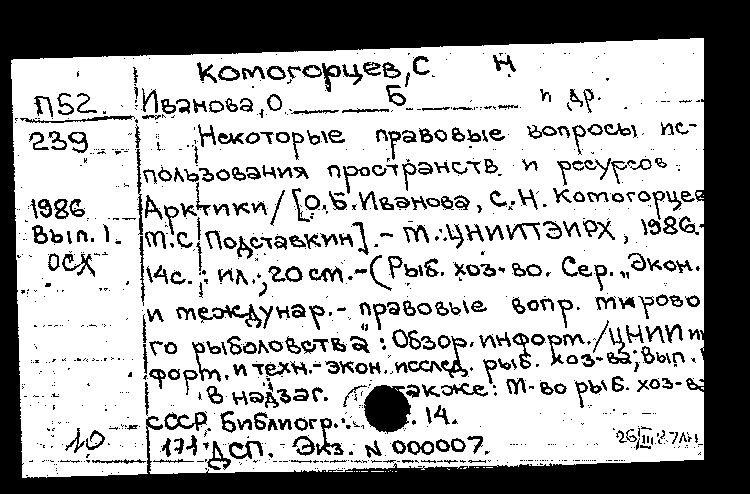 Комогорцев, С Н
П52. Иванова, О Б и др.
239 Некоторые правовые вопросы ис-
пользования пространств и ресурсов
1986 Арктики / [О.Б. Иванова, С.Н. Комогорцев
Вып. 1. М.С. Подставкин]. - М.: ЦНИИТЭИРХ, 1986.-
ОСХ 14 с.: ил.; 20 см. - (Рыб. хоз-во. Сер. „Экон.
и междунар.- правовые вопр. мирово
го рыболовства": Обзор. информ. / ЦНИИ ин
форм. и техн.-экон. исслед. рыб. хоз-ва; Вып.
В надзаг. также: М-во рыб. хоз-ва
СССР. Библиогр.: 14.
10 171 ДСП. Экз. N 000007.